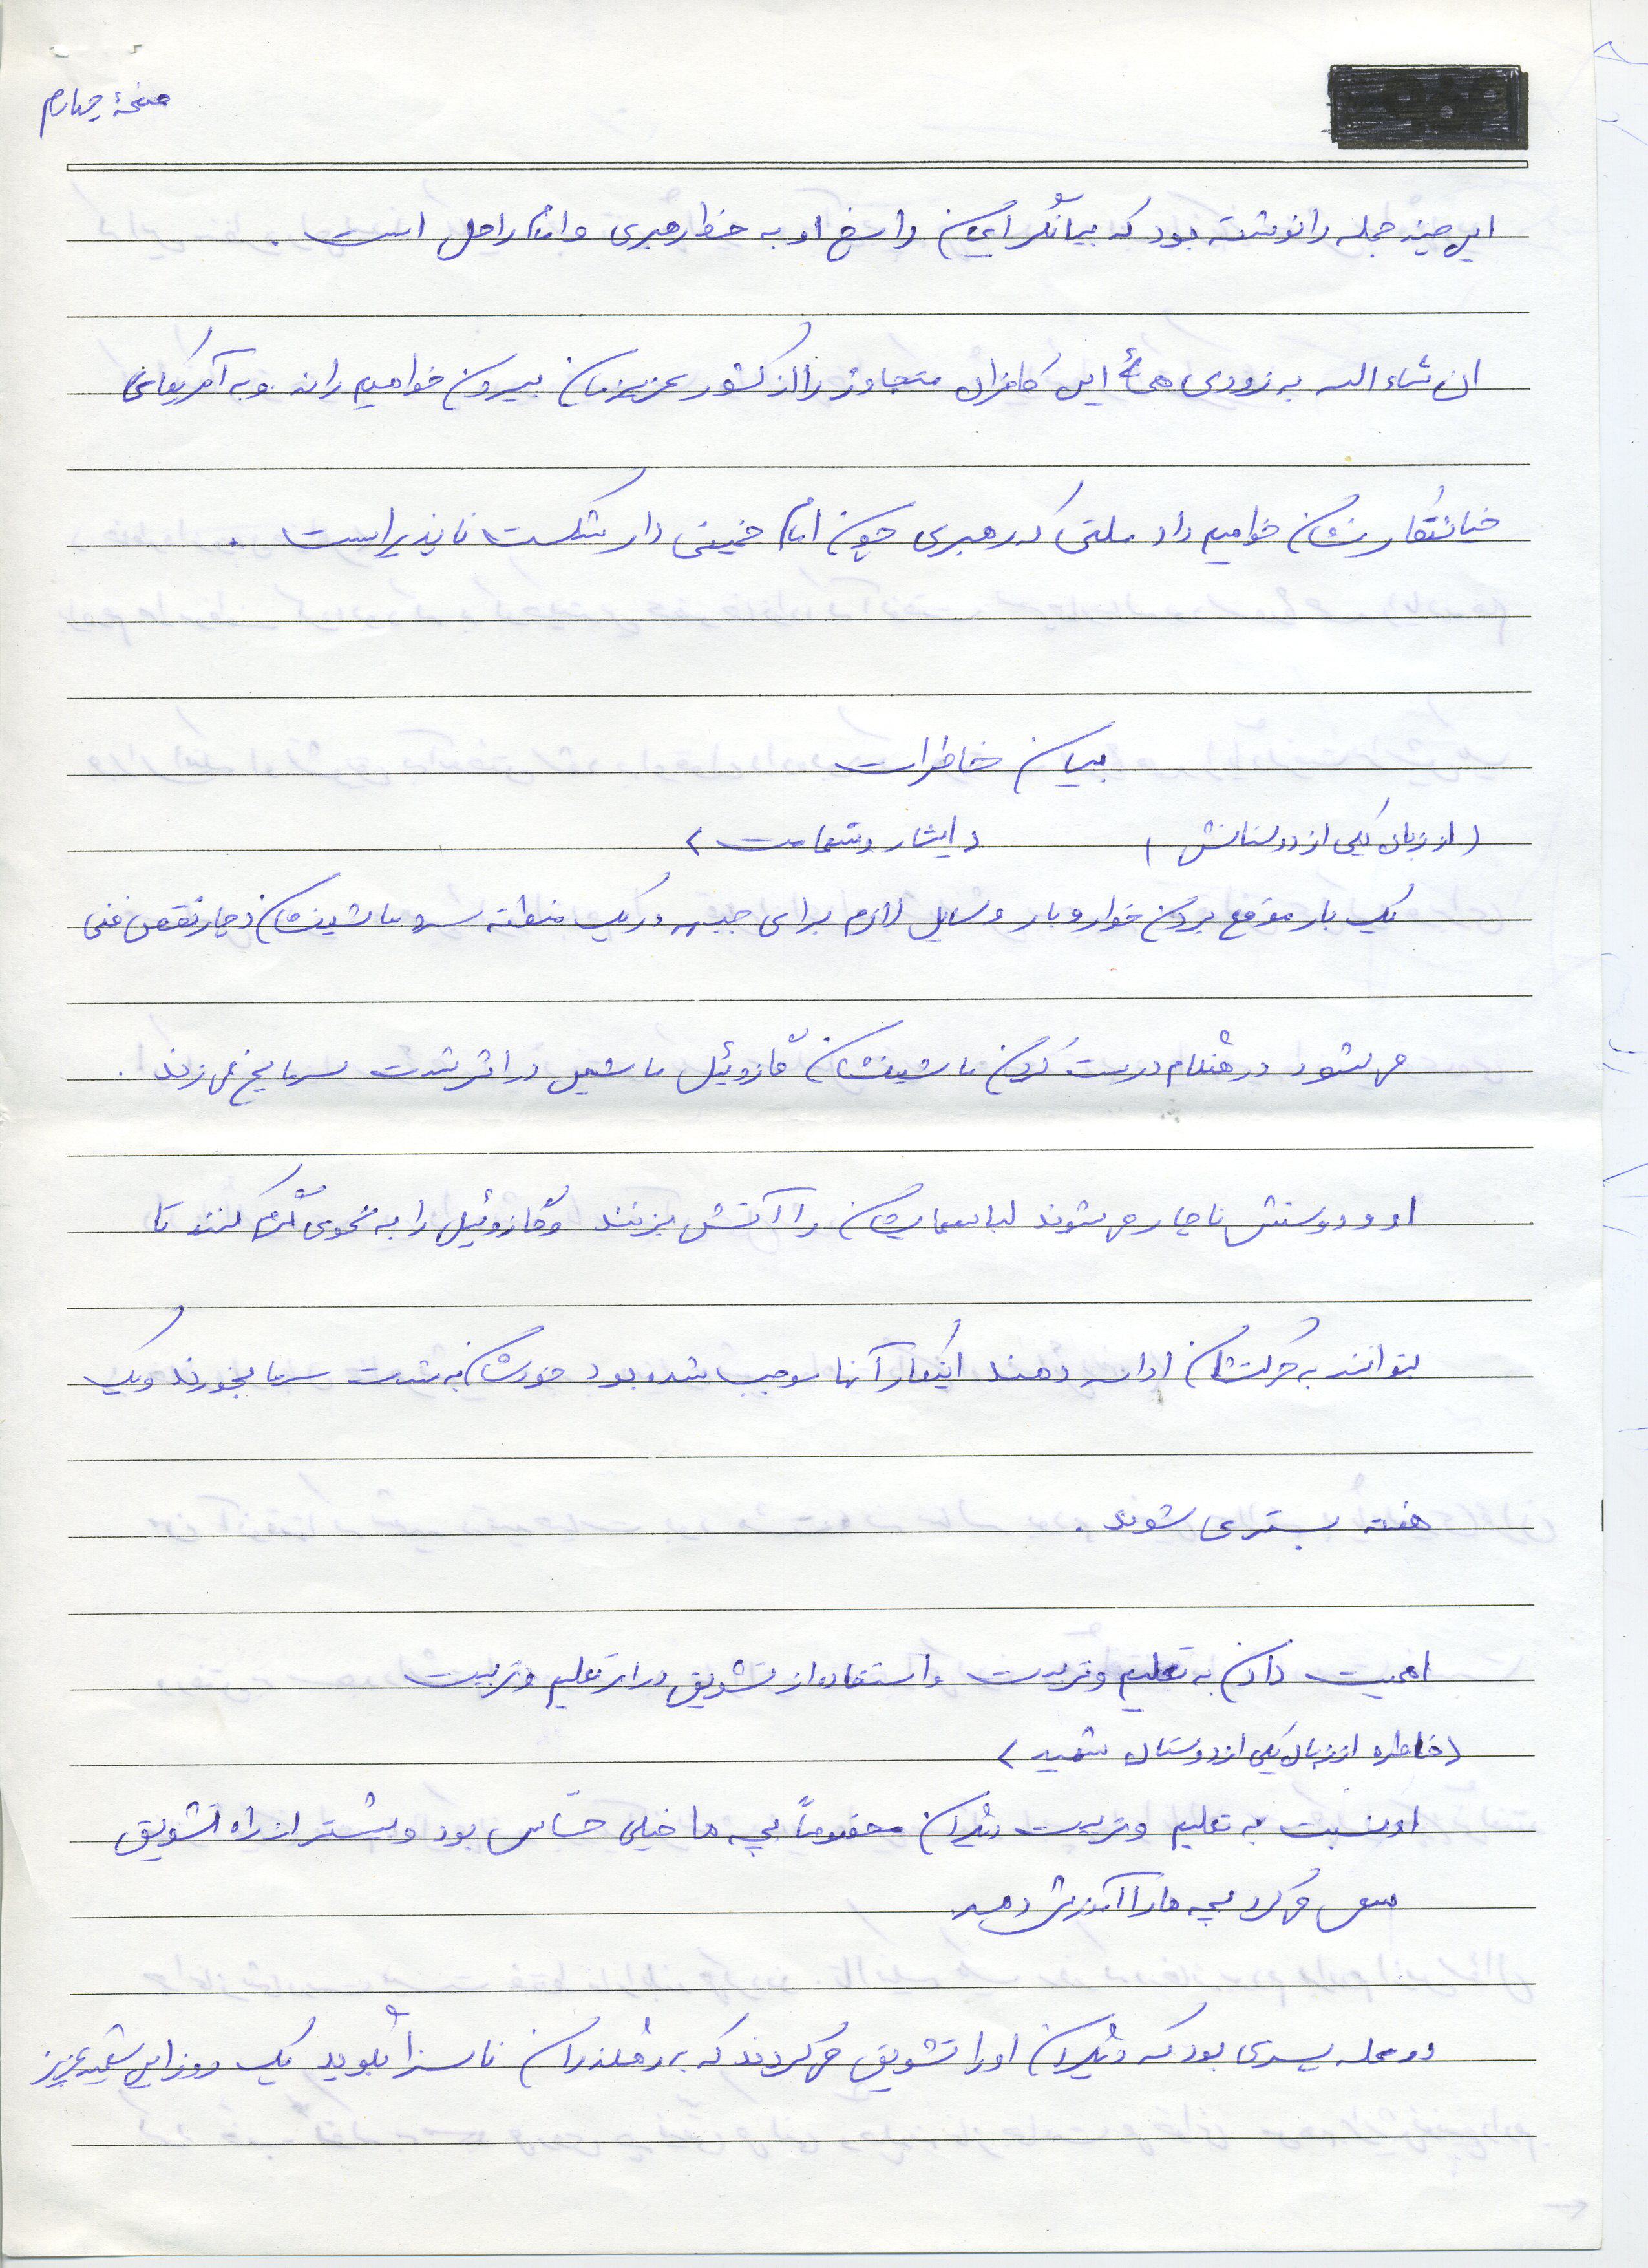 صفحهٔ چهارم
این چند جمله را نوشته بود که بیانگر ایمان راسخ او به خط رهبری و امام راحل است .
ان شاء الله به زودی همهٔ این کافران متجاوز را از کشور عزیزمان بیرون خواهیم راند و به آمریکای
خیانتکار نشان خواهیم داد ملتی که رهبری چون امام خمینی دارد شکست ناپذیر است .
بیان خاطرات
(از زبان یکی از دوستانش) (ایثار و شهامت)
یک بار موقع بردن خوار و بار وسایل لازم برای جبهه در یک منطقه سرد ماشینشان دچار نقص فنی
می‌شود در هنگام درست کردن ماشینشان گازوئیل ماشین در اثر شدت سرما یخ می‌زند .
او و دوستش ناچار می‌شوند لباسهایشان را آتش بزنند و گازوئیل را به نحوی گرم کنند تا
بتوانند به حرکتشان ادامه دهند اینکار آنها موجب شده بود خودشان به شدت سرما بخورند و یک
هفته بستری شوند .
اهمیت دادن به تعلیم و تربیت و استفاده از تشویق در امر تعلیم و تربیت
(خاطره از زبان یکی از دوستان شهید)
او نسبت به تعلیم و تربیت دیگران مخصوصاً بچه ها خیلی حسّاس بود و بیشتر از راه تشویق
سعی می‌کرد بچه ها را آموزش دهد.
در محله پسری بود که دیگران او را تشویق می‌کردند که به رهگذران ناسزا بگوید یک روز این شهید عزیز